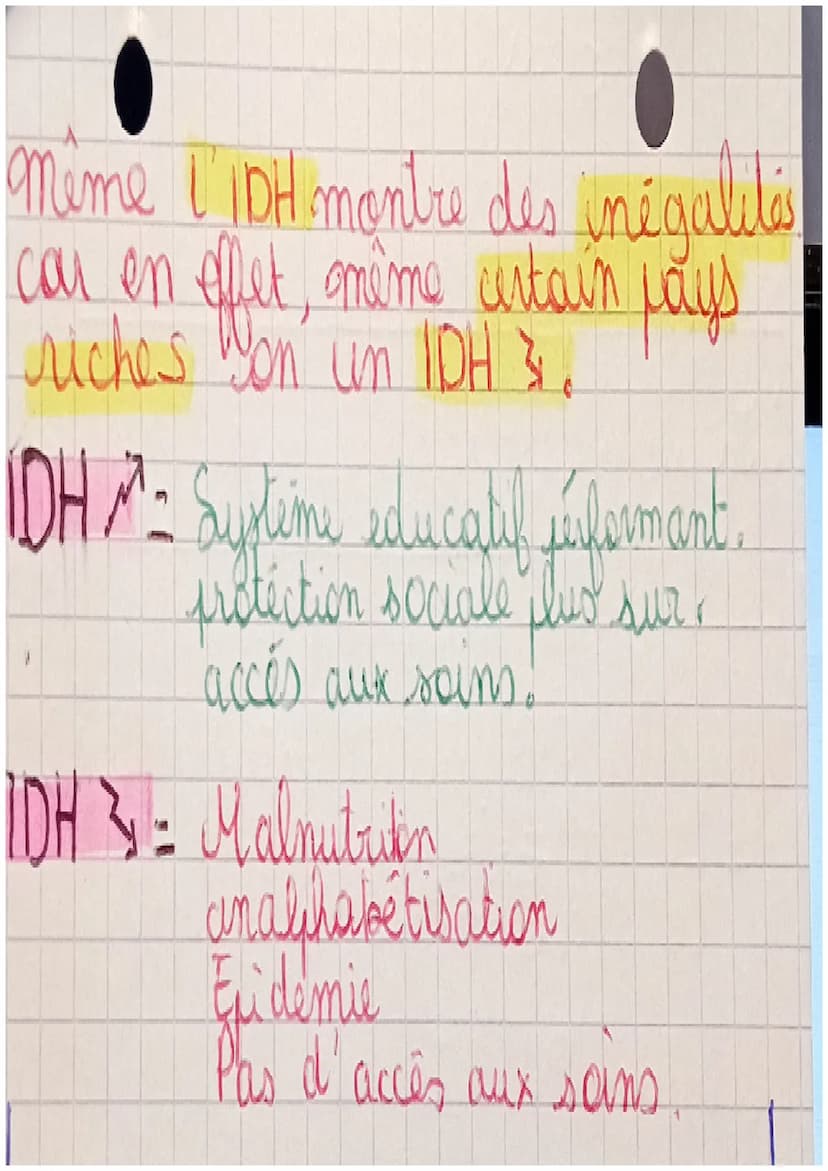 Même l'IDH montre des inégalités.
car en effet, même certain pays
riches son un IDH ↘.
IDH ↗ = Système educatif pérformant.
protéction sociale plus sur.
accés aux soins.
IDH ↘ = Malnutrition
analphabétisation
Epidémie
Pas d'accès aux soins.